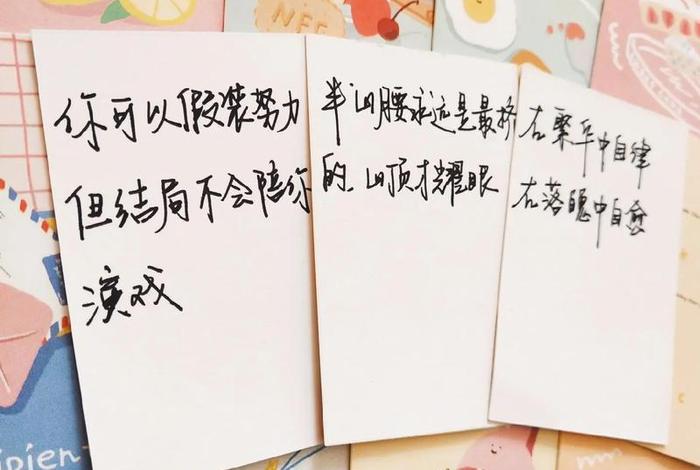 你可以假装努力
但结局不会陪你
演戏
半山腰永远是最挤
的.山顶才耀眼
在繁华中自律
在落魄中自愈
ipien